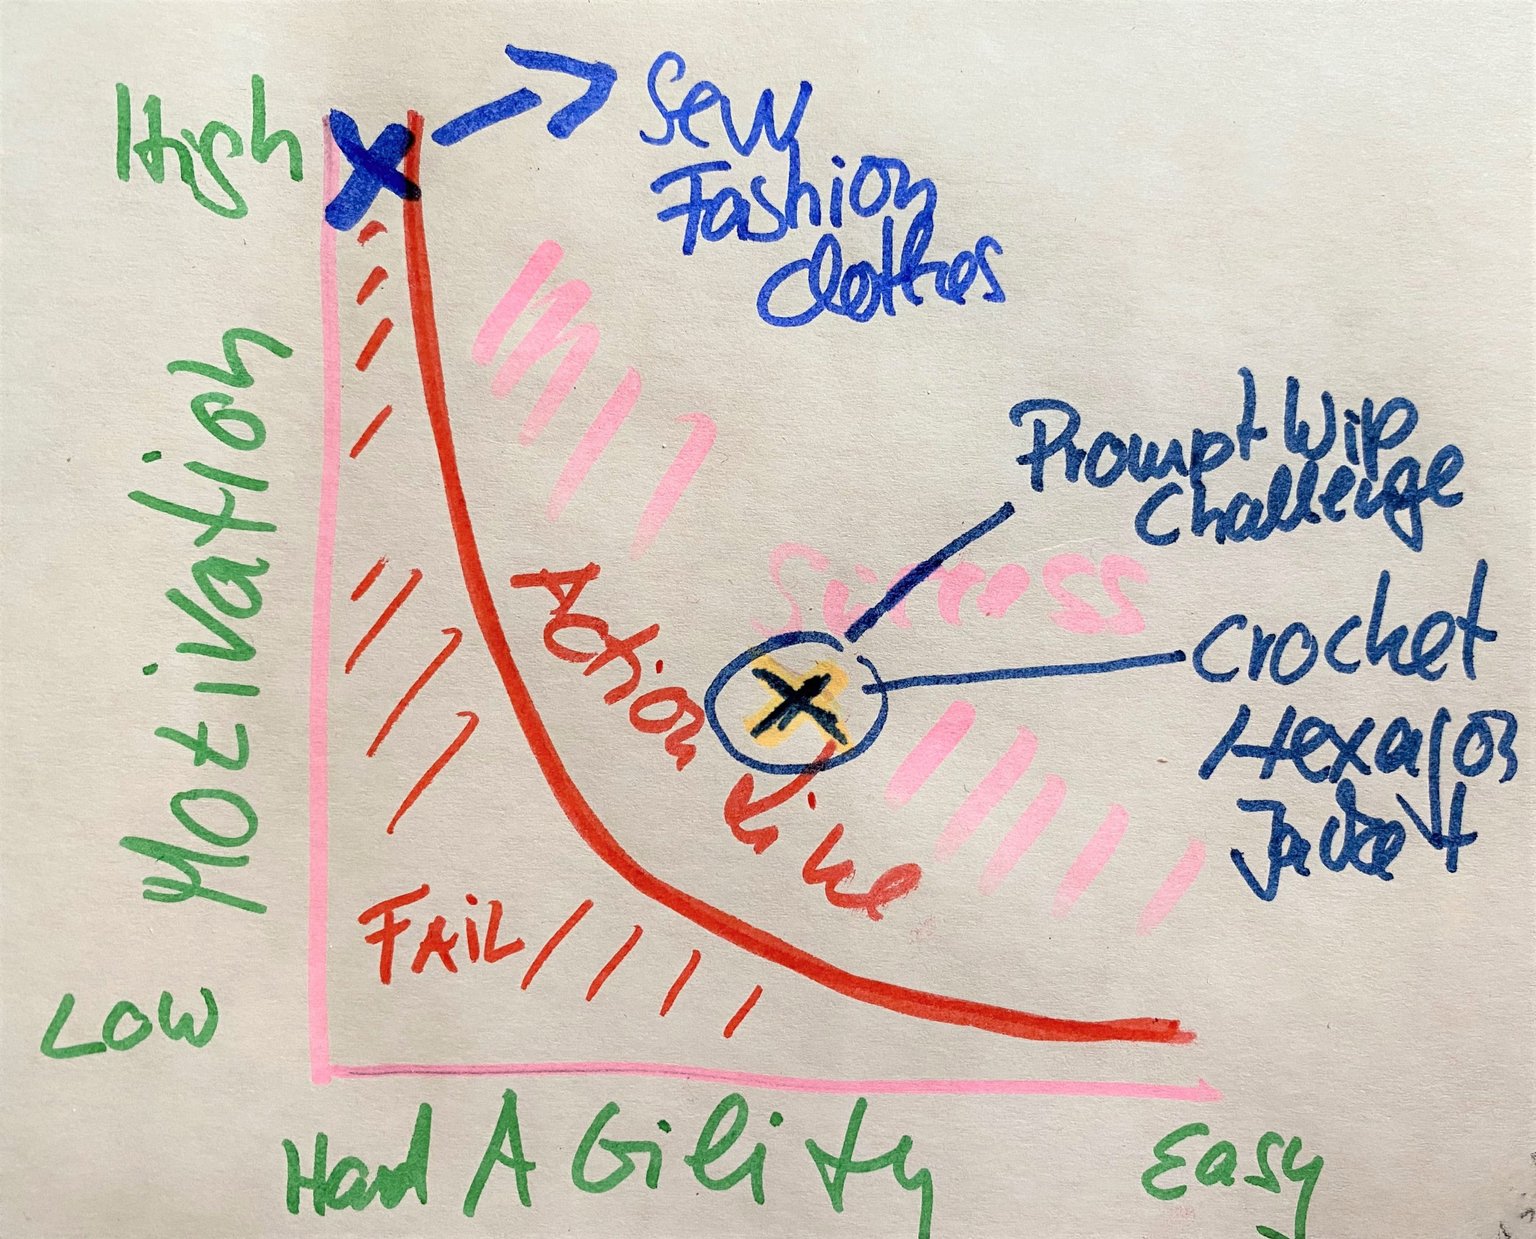 High
Sew
Fashion
clothes
Motivation
Prompt Wip
Challenge
Success
Action Line
Crochet
Hexagon
Jacket
FAIL
Low
Hard Ability Easy